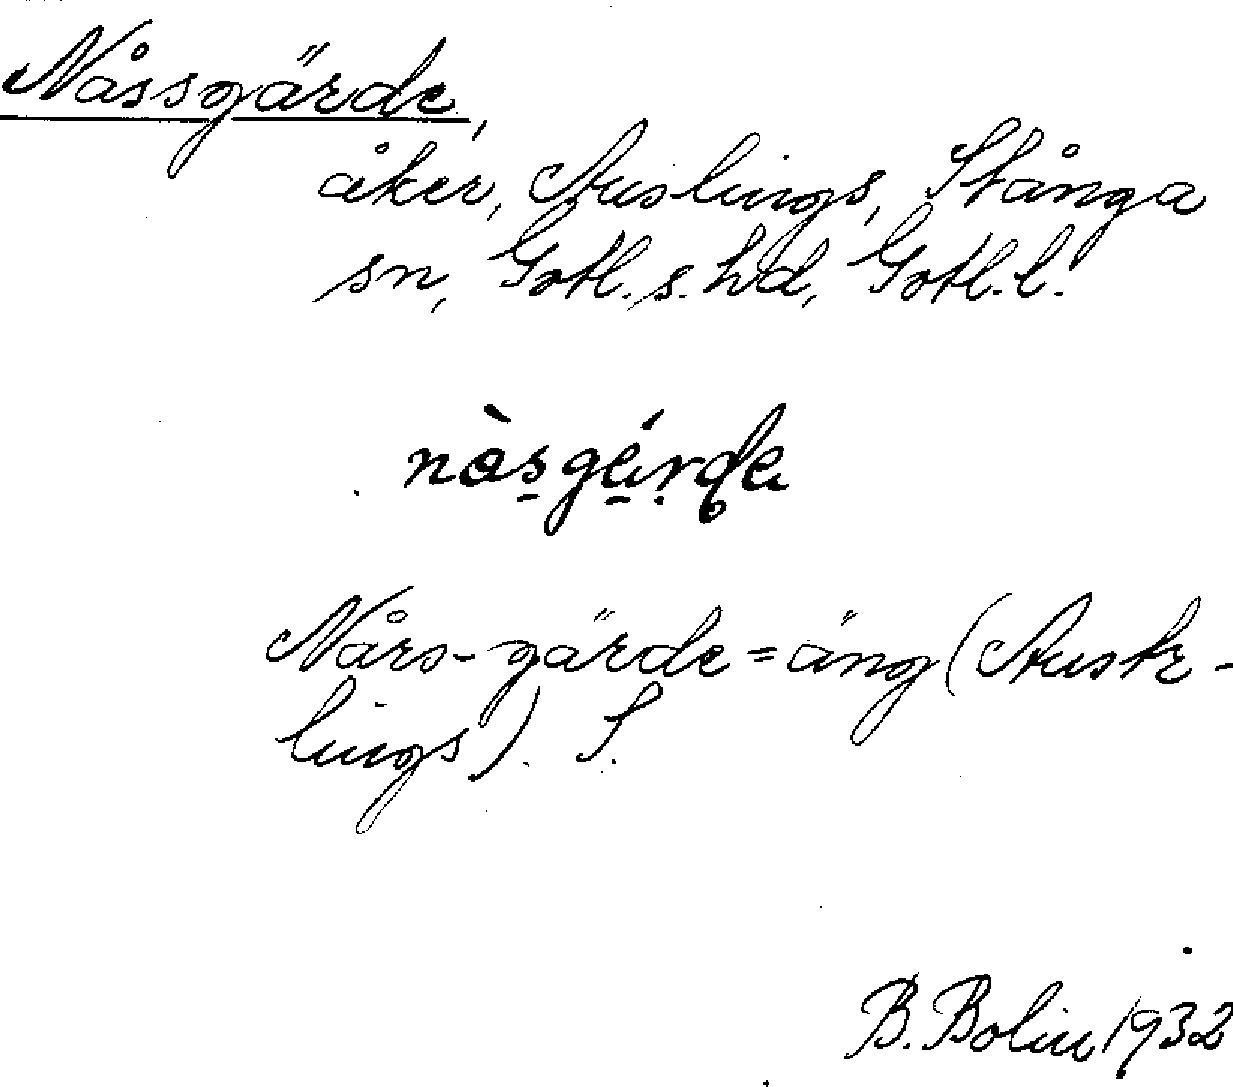 Nåssgärde,
åker, Auslings, Stånga
sn, Gotl. s. hd, Gotl. l.
nàsgärde
Nårs-gärde=äng (Austr-
lings). S.
B. Bolin 1932